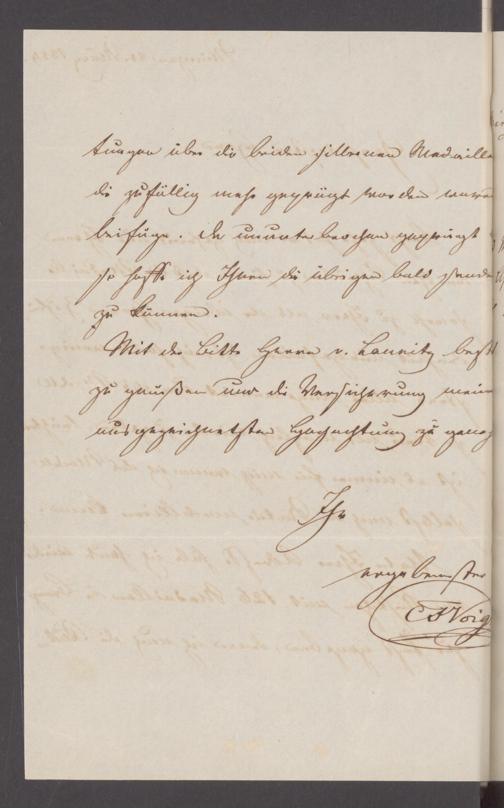 tungen über die beiden silbernen Medaille
die zufällig mehr geprägt worden waren
beifüge. Da ununterbrochen geprägt
so hoffe ich Ihnen die übrigen bald sende
zu können.
Mit der Bitte Herrn v. Launitz best
zu grüßen und die Versicherung mein
ausgezeichnetsten Hochachtung zu geneh
Ihr
ergebenster
C F Voig